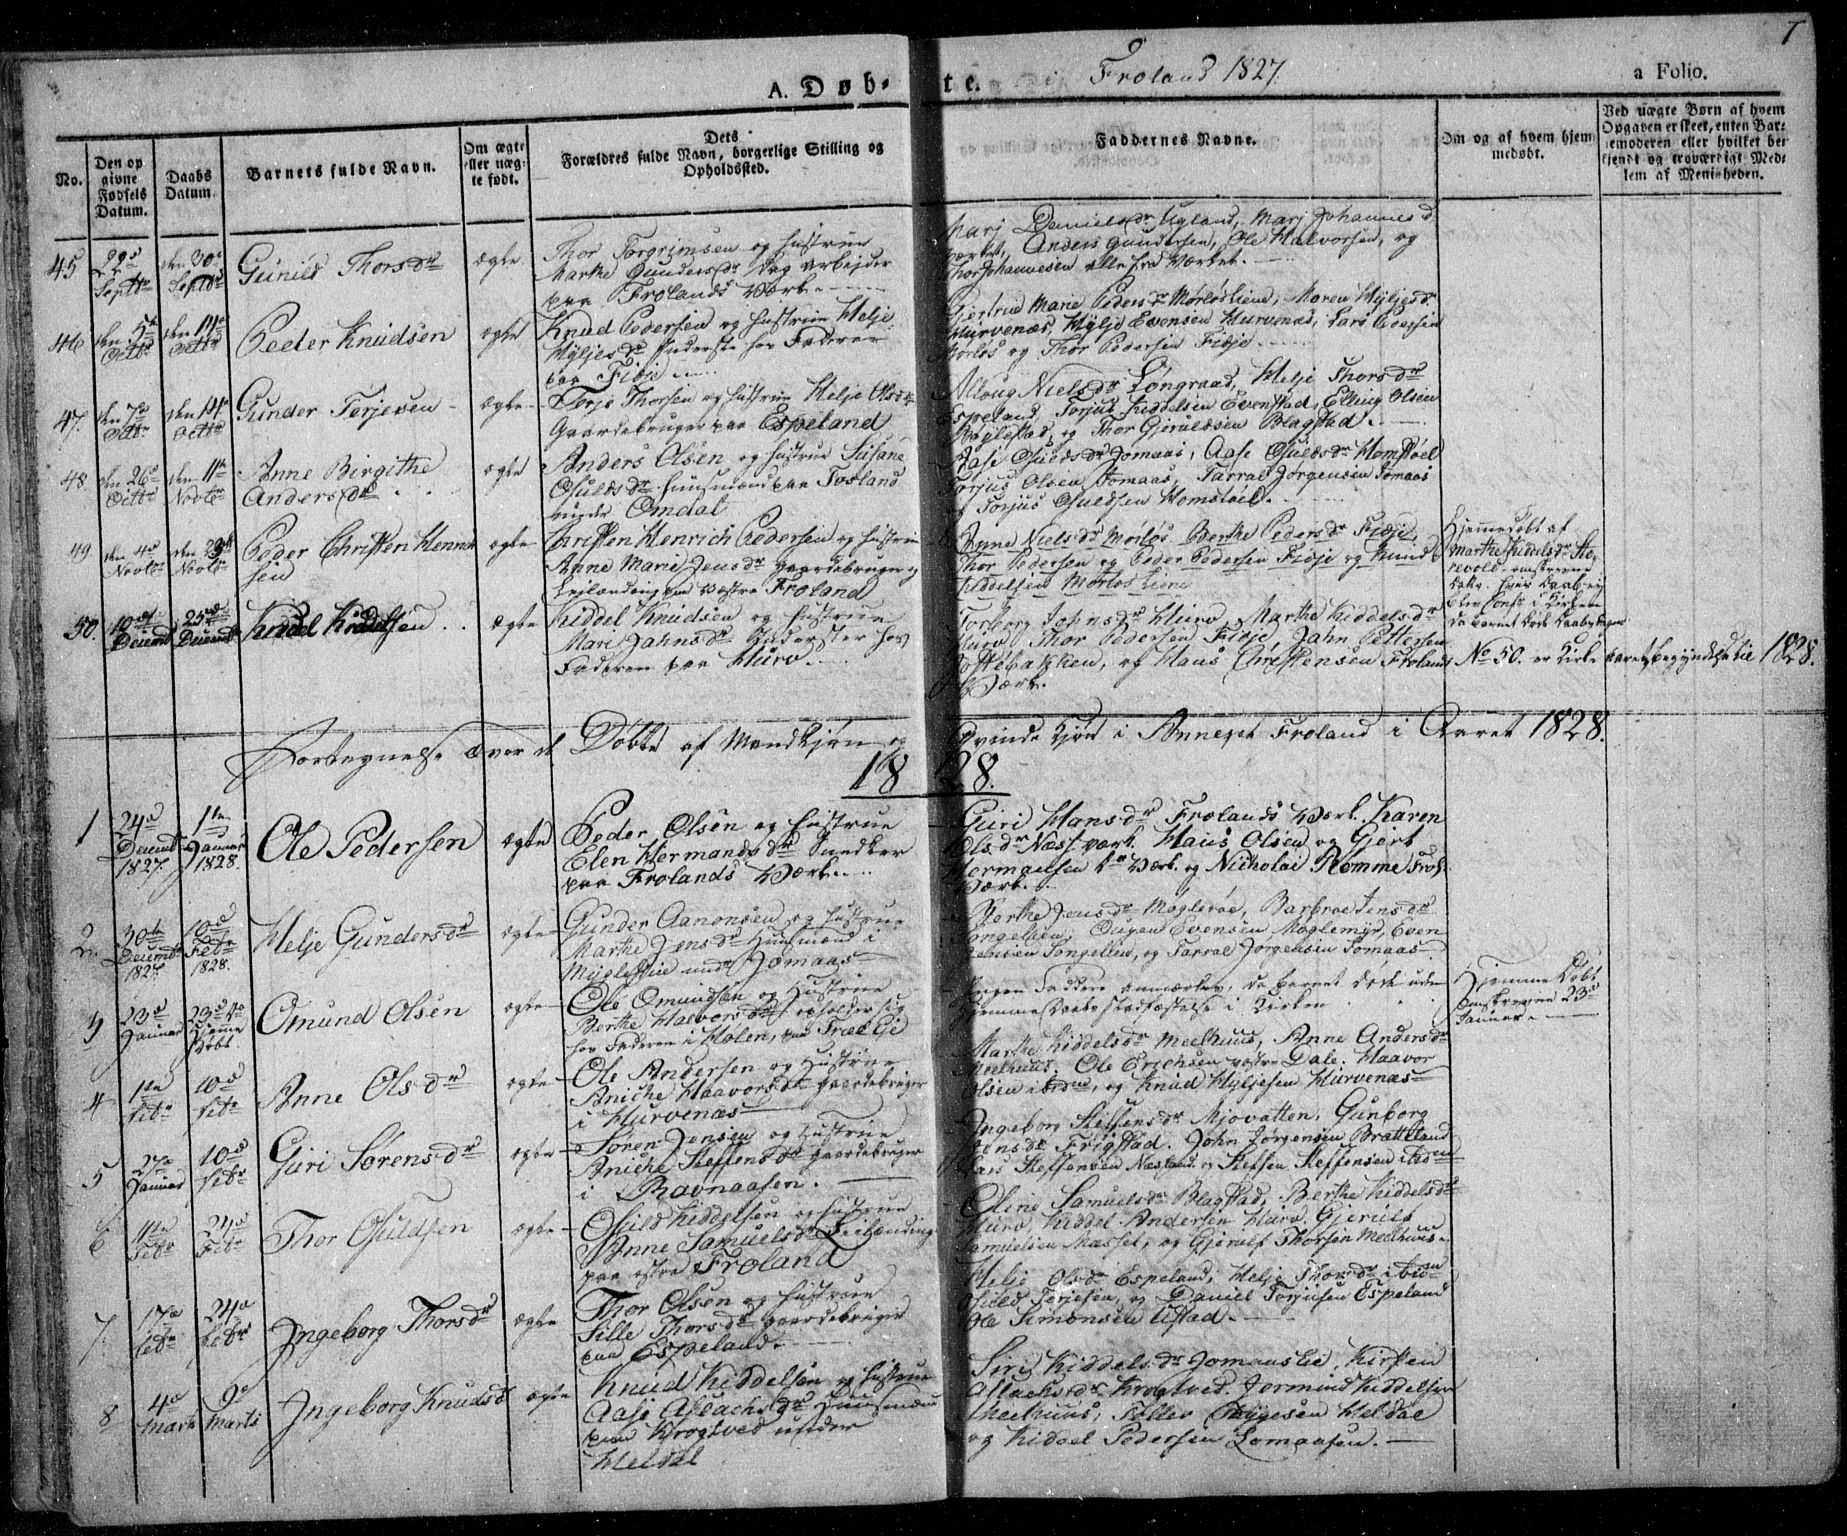 A. Døb- te. i Froland 1827. a Folio. 7
No.
Den op
givne
Fødsels
Datum.
Daabs
Datum.
Barnets fulde Navn.
Om ægte
eller uæg-
te født.
Dets
Forældres fulde Navn, borgerlige Stilling og
Opholdssted.
Faddernes Navne.
Om og af hvem hjem-
medøbt.
Ved uægte Børn af hvem
Opgaven er skeet, enten Bar-
nemoderen eller hvilket be-
kjendt og troværdigt Med-
lem af Menigheden.
45
22d
Septbr
den 30te
Septbr
Gunild Thorsdr
ægte
Thor Torgrimsen og Hustrue
Marthe Gundersdr Dag Arbejder
paa Frolands Værk.
Marj Danielsdr Ugland, Marj Johannesd
Værket, Anders Gundersen, Ole Halvorsen, og
Thor Johannesen alle fra Værket.
46
den 5te
Octbr
den 14de
Octbr
Peder Knudsen
ægte
Knud Pedersen og Hustrue Helje
Hyljesdr Inderste hos Faderen
paa Fidje
Gjertrud Marie Pedersdr Mørløsliene, Maren Hyljesdr
Hurvenæs, Hylje Evensen Hurvenæs, Lars Pedersen
Mørløs og Thor Pedersen Fidje.
47.
den 7de
Octbr
den 14de
Octbr
Gunder Terjesen
ægte
Terje Thorsen og Hustrue Helje Olsdr
Gaardbruger paa Espeland
Aaloug Nielsdr Songraad, Helje Thorsdr
Espeland, Torjus Kiddelsen Evenstad, Elling Olsen
Bøylestad, og Thor Gjeruldsen Blagstad.
48
den 26d
Octbr
den 11te
Novbr
Anne Birgithe
Andersdr
ægte
Anders Olsen og Hustrue Susane
Osuldsdr Huusmand paa Fosland
under Omdal
Aase Osuldsdr Jomaas, Aase Osuldsdr Homstøel
Torjus Olsen Jomaas, Tarral Jørgensen Jomaas
og Torjus Osuldsen Homstøel.
49
den 4d
Novbr
den 23d
Novbr
Peder Christen Henrich
sen
ægte
Christen Henrich Pedersen og Hustrue
Anne Marie Jensdr Gaardbruger og
Leilænding paa Vestre Froland
Anne Nielsdr Mørløs Berthe Pedersdr Fidje,
Thor Pedersen og Peder Pedersen Fidje og Knud
Kiddelsen Mørløs Liene
Hjemmedøbt af
Marthe Kiddelsdr Sto-
revold
50.
10de
Decembr
25de
Decembr
Kiddel Kiddelsen
ægte
Kiddel Knudsen og Hustrue
Mari Jahnsdr Inderster hos
Faderen paa Hurv.
Torborg Johnsdr Hurv, Marthe Kiddelsdr
Hurv, Thor Pedersen Fidje, Jahn Pettersen
Pottebakken, og Hans Christensen Frolands
Værk.
No 50. er Kirke Aarets begyndelse til 1828.
Fortegnelse over de Døbte af Mandkjøn og Qvinde Kjøn i Annexet Froland i Aaret 1828.
1828.
1
24d
Decembr
1827.
1te
Januar
1828.
Ole Pedersen
ægte
Peder Olsen og Hustrue
Elen Hermandsdr Snedker
paa Frolands Værk
Guri Hansdr Frolands Værk. Karen
Olsdr Næss værk. Hans Olsen og Gjert
Hermansen Værk. og Nicholai Romme Frol.
Værk.
2.
30te
Decembr
1827.
10d
Febr
1828.
Helje Gundersdr
ægte
Gunder Aanonsen og Hustrue
Marthe Jensdr Huusmand i
Myglestue under Jomaas
Berthe Jensdr Møglerøe, Barbroe Jensdr
Songelien, Ougen Evensen Møglemyr, Even
Jensen Songelien, og Tarral Jørgensen Jomaas
3
23d
Januar
23d
Hjemme
døbt.
Omund Olsen
ægte
Ole Omundsen og Hustrue
Berthe Halvorsdr opholder sig
hos Faderen i Hølen, paa Træe Eie
Ingen Faddere anmærket, da Barnet døde uden
Hjemme Daabs stadfæstelse i Kirken
Hjemme Døbt
23d
Januar.
4
1te
Febr
10d
Febr
Anne Olsdr
ægte
Ole Andersen og Hustrue
Aniche Haavorsdr Gaardbruger
i Hurvenæs
Marthe Kiddelsdr Meelhuus, Anne Andersdr
Meelhuus. Ole Erichsen vestre Dale. Haavor
Olsen ibidm, og Knud Hyljesen Hurvenæs
5
27de
Januar
10d
Febr
Guri Sørensdr
ægte
Søren Jensen og Hustrue
Aniche Steffensdr Gaardbruger
i Ravnaasen.
Ingeborg Steffensdr Mjovatten. Gunborg
Jensdr Frigstad. John Jørgensen Bratteland
Lars Steffensen Næsland. og Steffen Steffensen ibidm
6
11te
Febr
24d
Febr
Thor Osuldsen
ægte
Osuld Kiddelsen og Hustrue
Anne Samuelsdr Leilænding
paa østre Froland
Oline Samuelsdr Blagstad, Berthe Kiddelsdr
Hurv, Kiddel Andersen Hurv. Gjerulf
Samuelsen Messel, og Gjerulf Thorsen Meelhuus.
7.
17de
Febr
24d
Febr
Ingeborg Thorsdr
ægte
Thor Olsen og Hustrue
Sille Thorsdr Gaardbruger
paa Espeland.
Helje Olsdr Espeland, Helje Thorsdr ibidm
Osuld Terjesen, og Daniel Torjusen Espeland
Ole Simonsen Ustad.
8
4d
Marts
9d
Marts
Ingeborg Knudsd
ægte
Knud Kiddelsen og Hustrue
Aase Aslachsdr Huusmand
paa Krogtved under
Heldal
Siri Kiddelsdr Jomaaslie, Kirsten
Aslachsdr Krogtved. Jermund Kiddelsen
Meelhuus, Toller Thygesen Heldal
og Kiddel Pedersen Lomaasen.